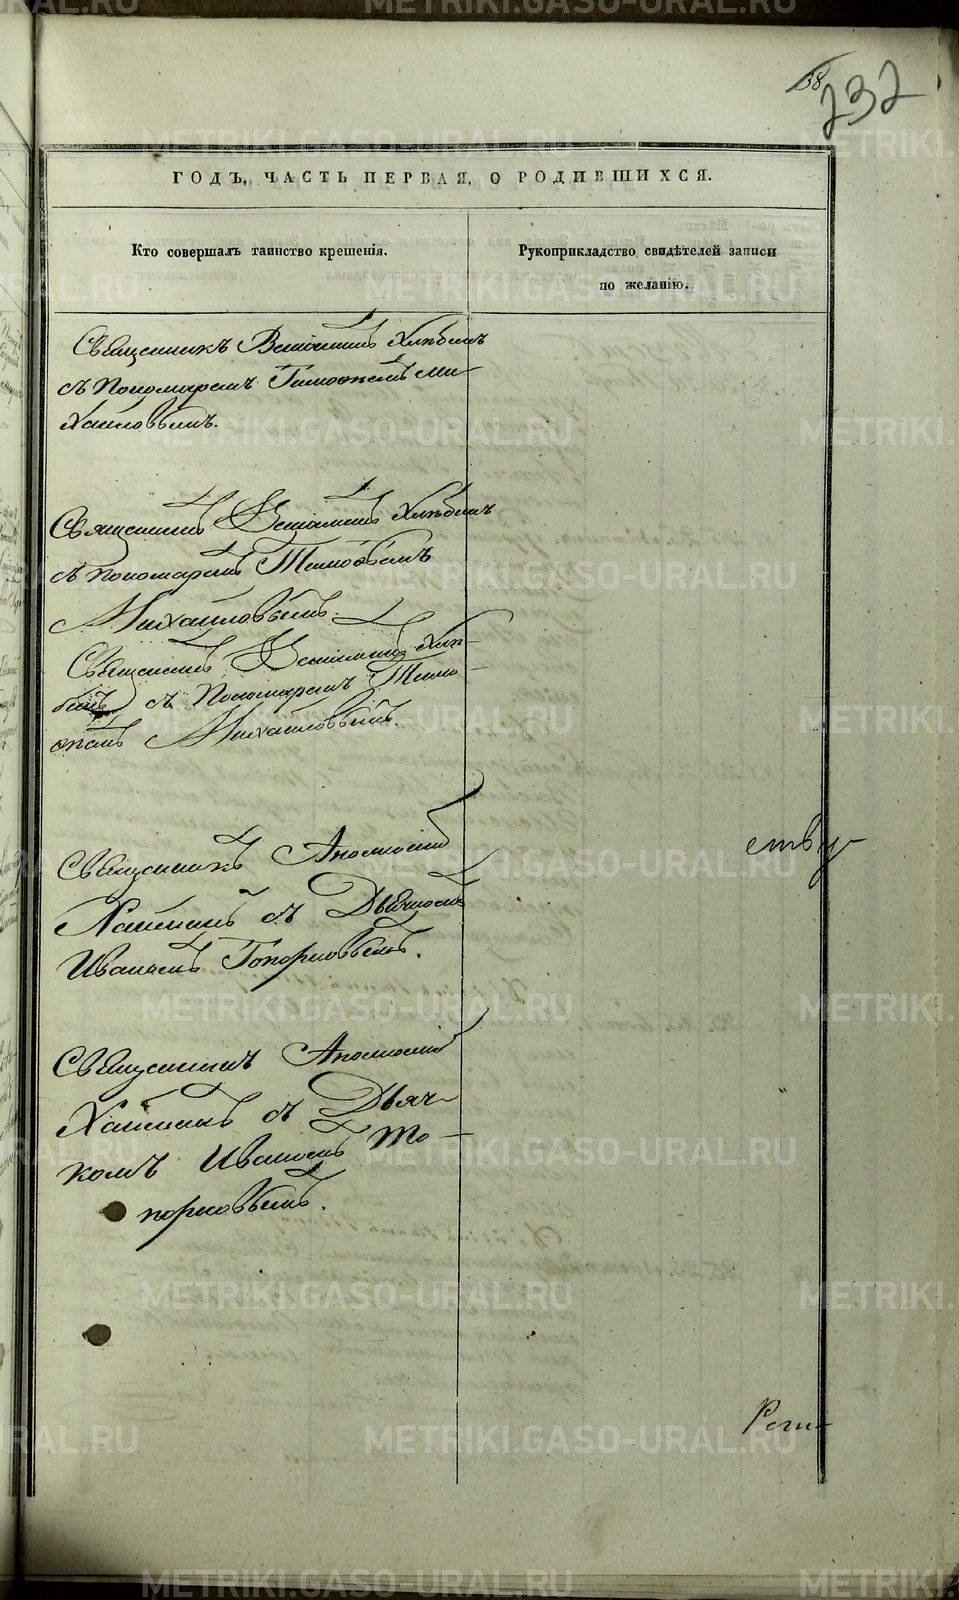 38
232
ГОДЪ, ЧАСТЬ ПЕРВАЯ, О РОДИВШИХСЯ.
Кто совершалъ таинство крещенія.
Рукоприкладство свидѣтелей записи
по желанію.
Священникъ Веніаминъ Хлѣбинъ
съ Пономаремъ Тимофеемъ Ми-
хайловымъ.
Священникъ Веніаминъ Хлѣбинъ
съ пономаремъ Тимофеемъ
Михайловымъ.
Священникъ Веніаминъ Хлѣ-
бинъ съ Пономаремъ Тимо
феемъ Михайловымъ.
Священникъ Аполлосъ
съ Дьячкомъ
Иваномъ Топорковымъ.
Священникъ Аполлосъ
съ Дьяч-
комъ Иваномъ То-
порковымъ.
ству-
METRIKI.GASO-URAL.RU